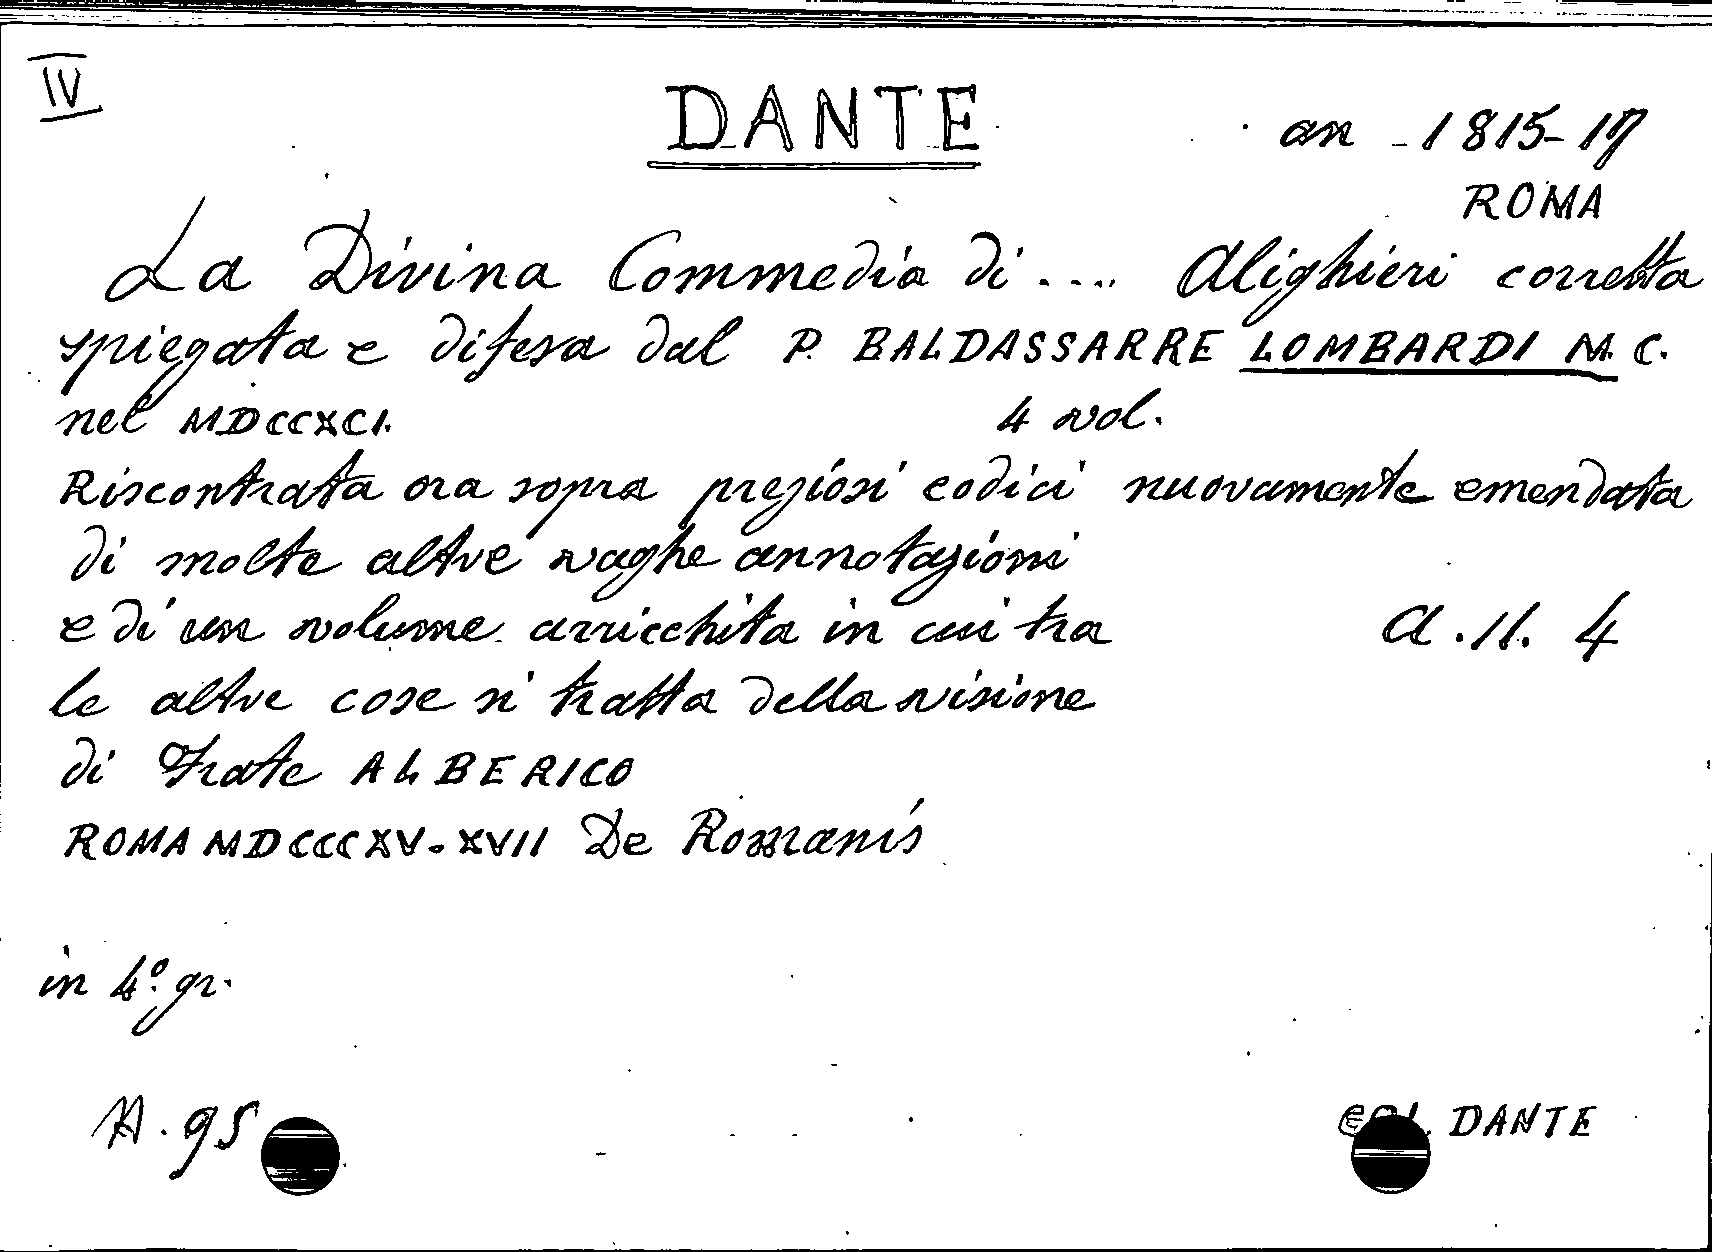 IV
DANTE
an - 1815-17
ROMA
La Divina Commedia di .... Alighieri corretta
spiegata e difesa dal P. BALDASSARRE LOMBARDI M. C.
nel MDCCXCI. 4 vol.
Riscontrata ora sopra preziosi codici nuovamente emendata
di molte altre vaghe annotazioni
e di un volume arricchita in cui tra
le altre cose si tratta della visione
di Frate ALBERICO
ROMA MDCCCXV-XVII De Romanis
A.11. 4
in 4.° gr.
A. 95
DANTE